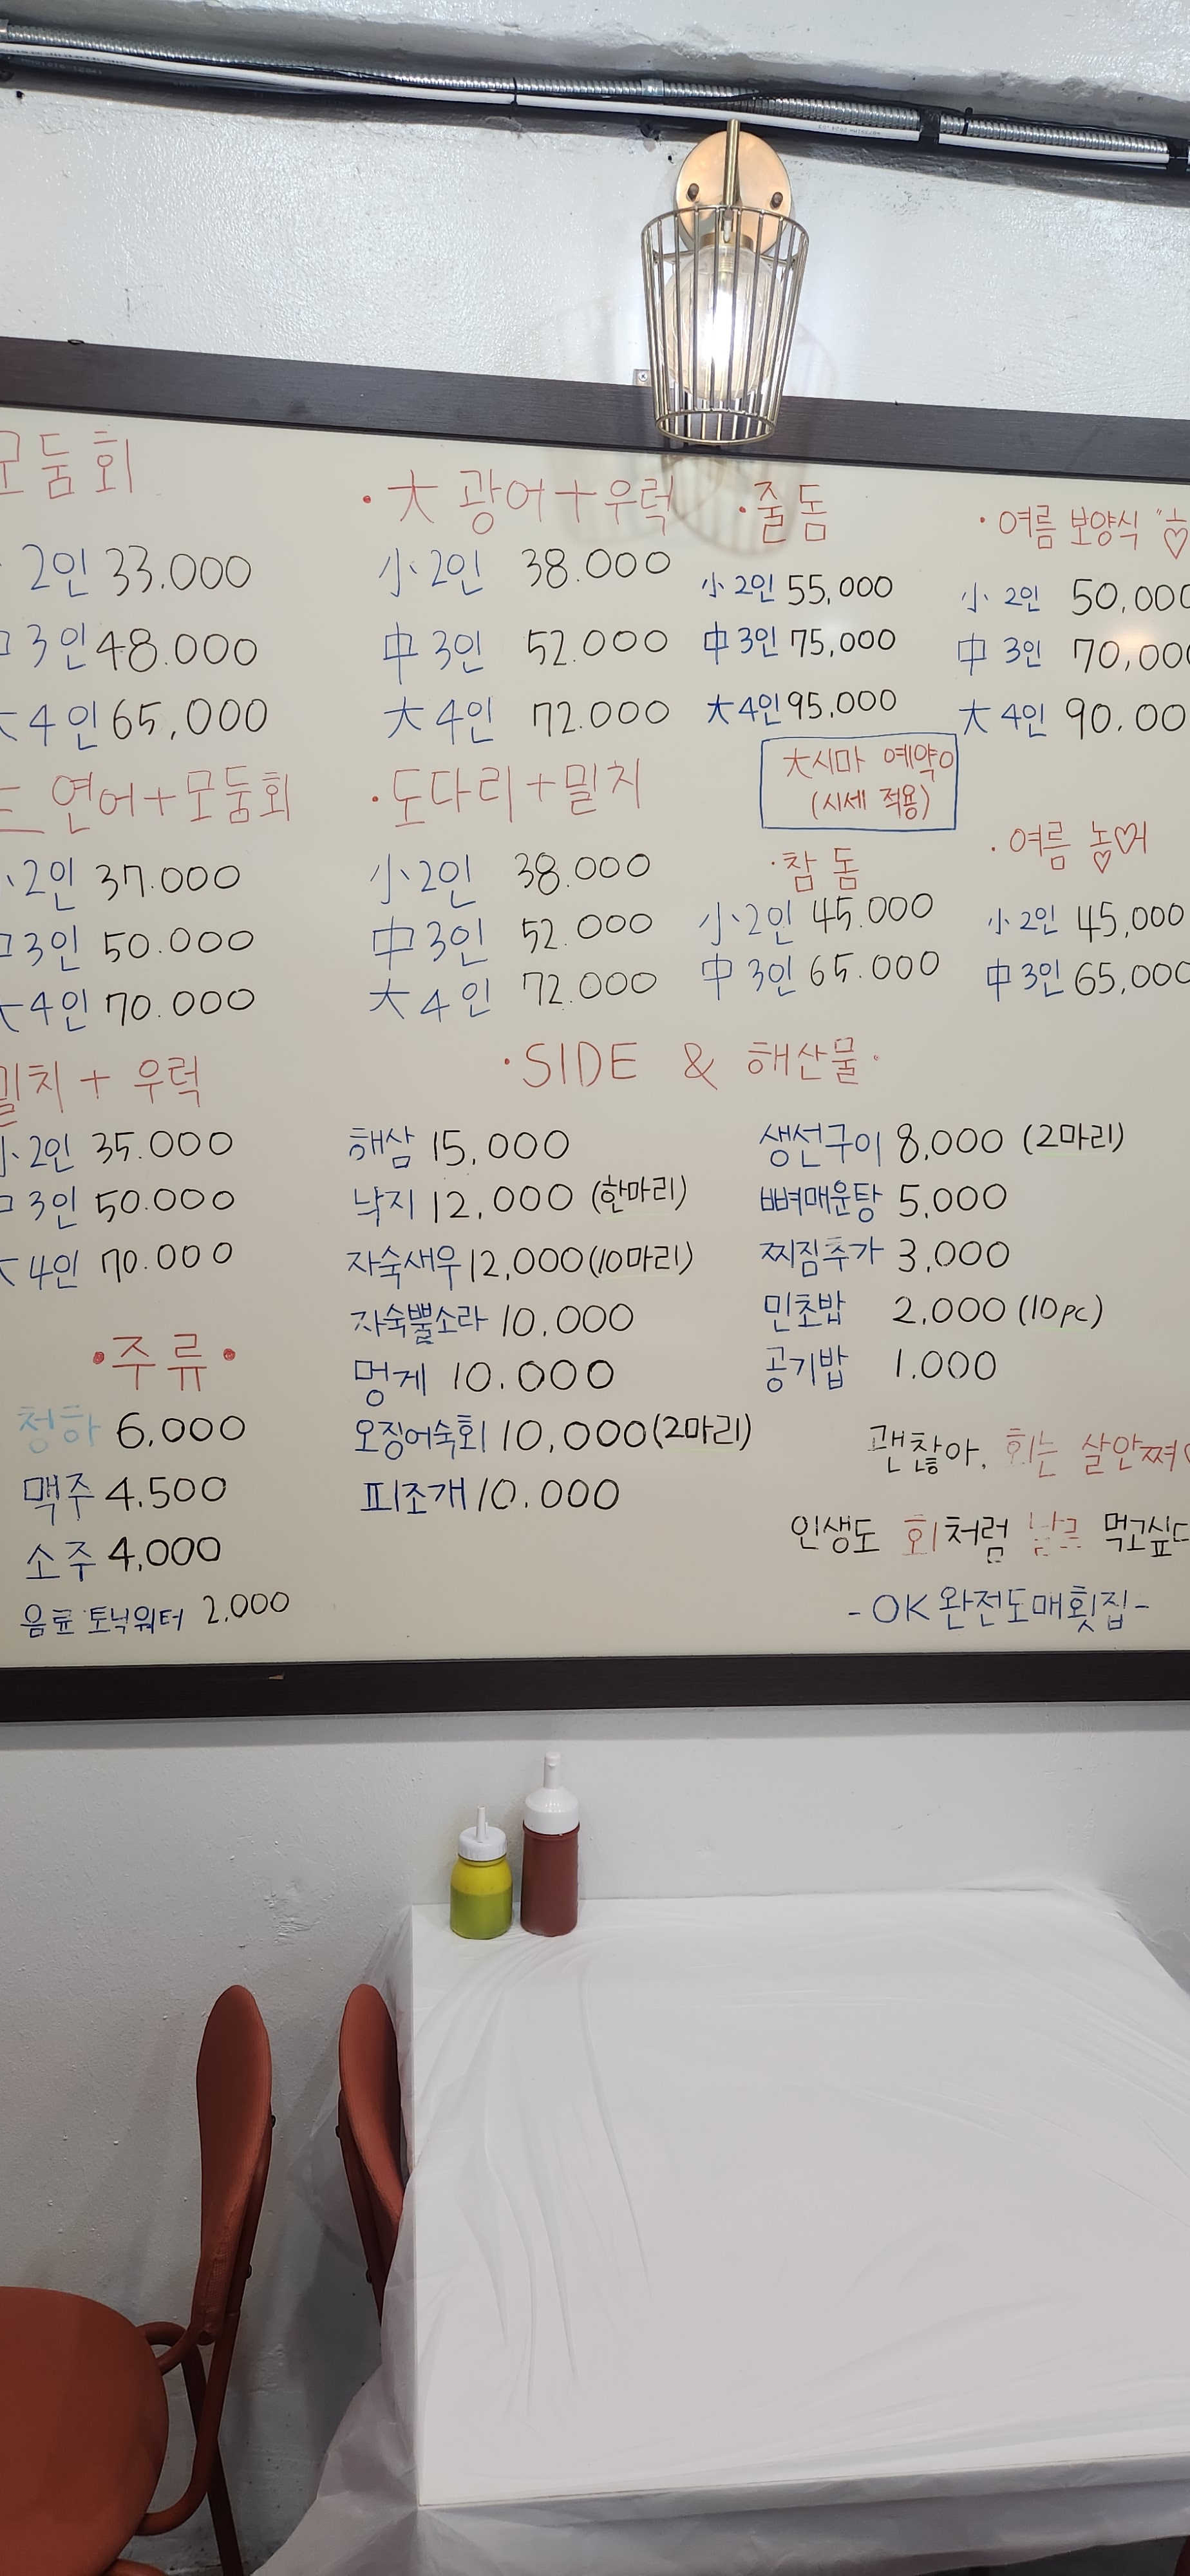 모둠회
2인 33.000
3인 48.000
4인 65,000
연어+모둠회
2인 37.000
3인 50.000
4인 70.000
밀치 + 우럭
小 2인 35.000
3인 50.000
4인 70.000
•주류•
청하 6,000
맥주 4.500
소주 4,000
음료 토닉워터 2.000
·大 광어+우럭
小 2인 38.000
中 3인 52.000
大 4인 72.000
·도다리+밀치
小 2인 38.000
中 3인 52.000
大 4인 72.000
·줄돔
小 2인 55,000
中 3인 75,000
大 4인 95,000
大시마 예약
(시세 적용)
·참돔
小 2인 45.000
中 3인 65.000
·여름 보양식
小 2인 50,000
中 3인 70,000
大 4인 90.00
·여름 농어
小 2인 45,000
中 3인 65,000
·SIDE & 해산물·
해삼 15,000
낙지 12,000 (한마리)
자숙새우 12,000 (10마리)
자숙뿔소라 10.000
멍게 10.000
오징어숙회 10,000 (2마리)
피조개 10.000
생선구이 8,000 (2마리)
뼈매운탕 5,000
찌짐추가 3,000
민초밥 2,000 (10pc)
공기밥 1.000
괜찮아. 회는 살안쪄
인생도 회처럼 날로 먹고싶다
-OK 완전도매횟집-